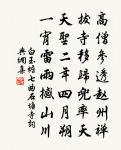 高僧參透趙州禪
拔寺移歸兜率天
天聖二年四月朔
一宵雷雨撼山川
白玉蟾七曲石塘寺詞
典網集